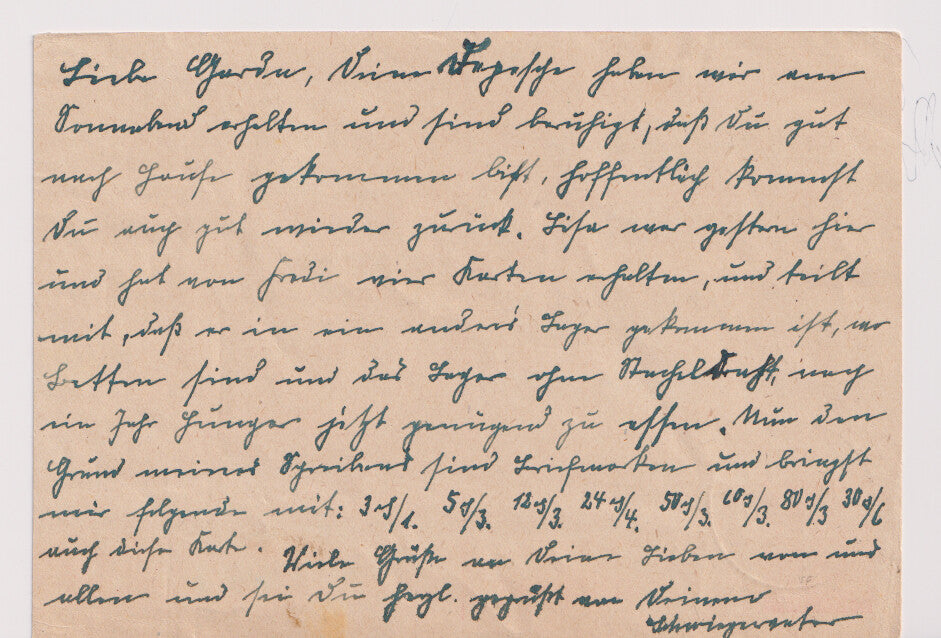 Liebe Gerda, Deine Depesche haben wir am
Sonnabend erhalten und sind beruhigt, daß Du gut
nach Hause gekommen bist, hoffentlich kommst
Du auch gut wieder zurück. Lisa war gestern hier
und hat von Fredi vier Karten erhalten, und teilt
mit, daß er in ein anders Lager gekommen ist, wo
Betten sind und das Lager ohne Stacheldraht, nach
ein Jahr Hunger jetzt genügend zu essen. Nun den
Grund meines Schreibens sind Briefmarken und bringst
mir folgende mit: 3 ₰/1. 5 ₰/3. 12 ₰/3. 24 ₰/4. 50 ₰/3. 60 ₰/3. 80 ₰/3 30 ₰/6
auch diese Karte. Viele Grüße an Deine Lieben von uns
allen und sei Du herzl. gegrüßt von Deinem
Schwiegervater